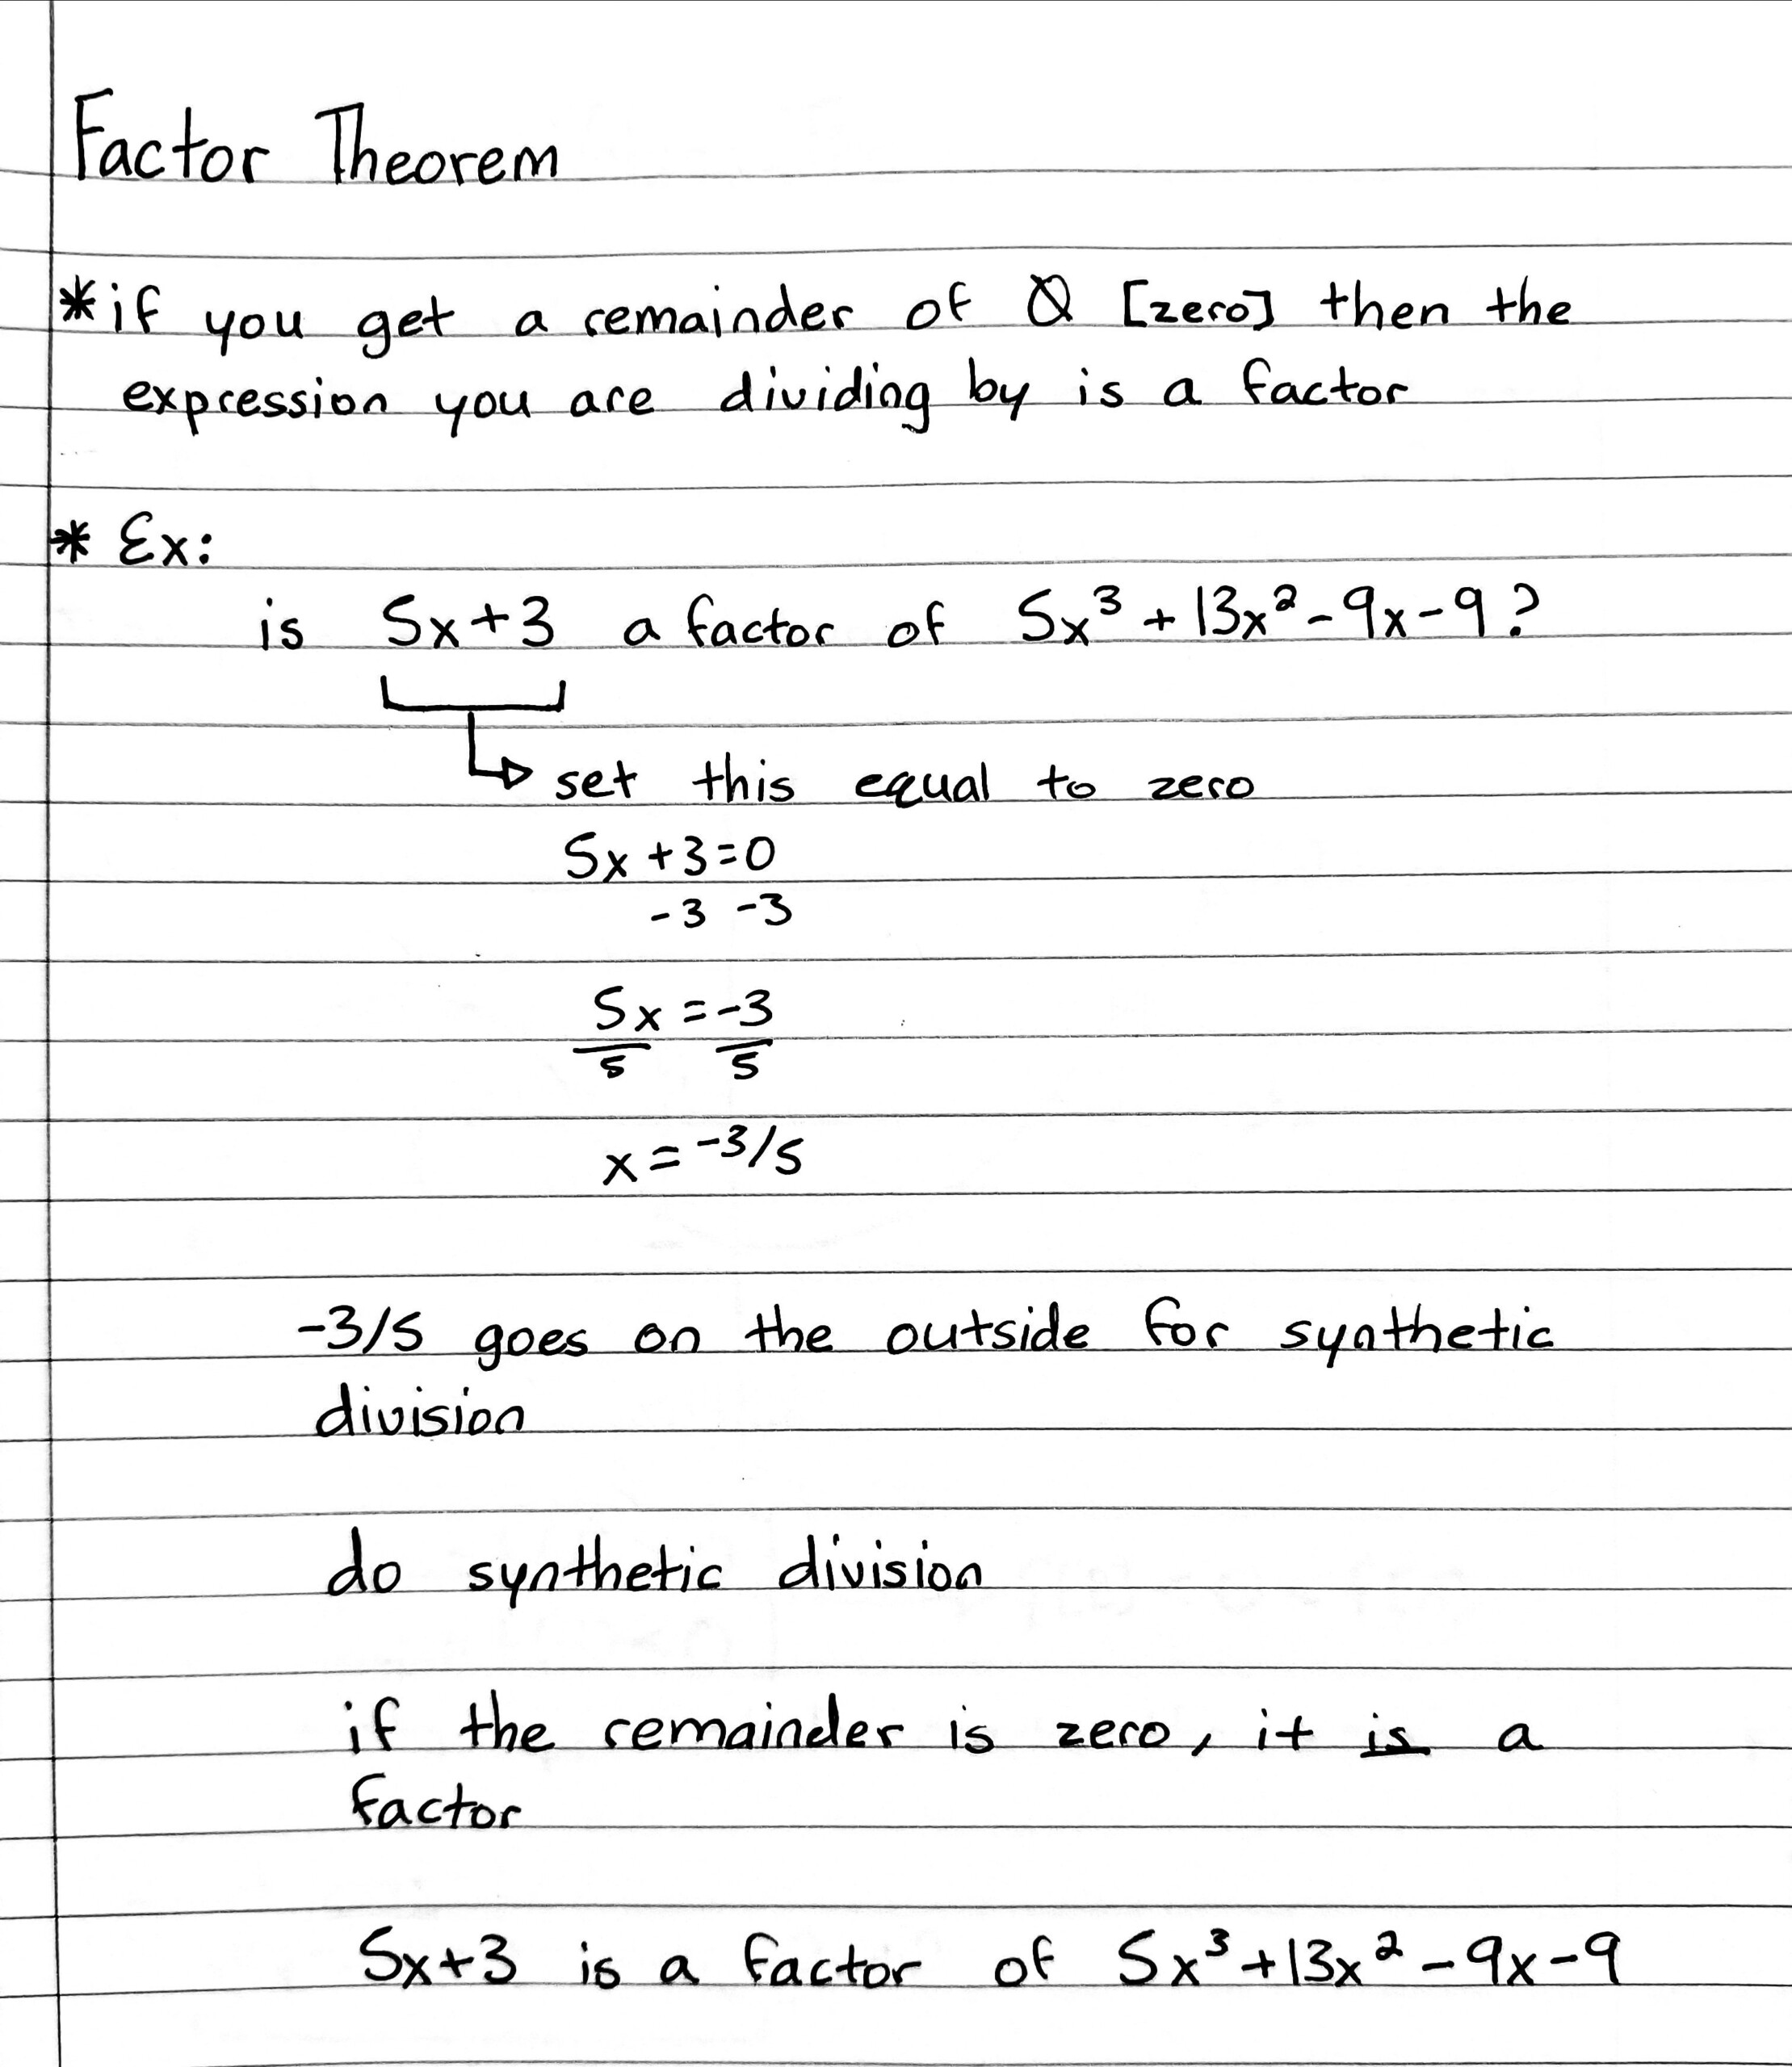 Factor Theorem
*if you get a remainder of 0 [zero] then the
expression you are dividing by is a factor
* Ex:
is 5x+3 a factor of 5x³+13x²-9x-9?
set this equal to zero
5x+3=0
-3 -3
5x=-3
5 5
x=-3/5
-3/5 goes on the outside for synthetic
division
do synthetic division
if the remainder is zero, it is a
factor
5x+3 is a factor of 5x³+13x²-9x-9